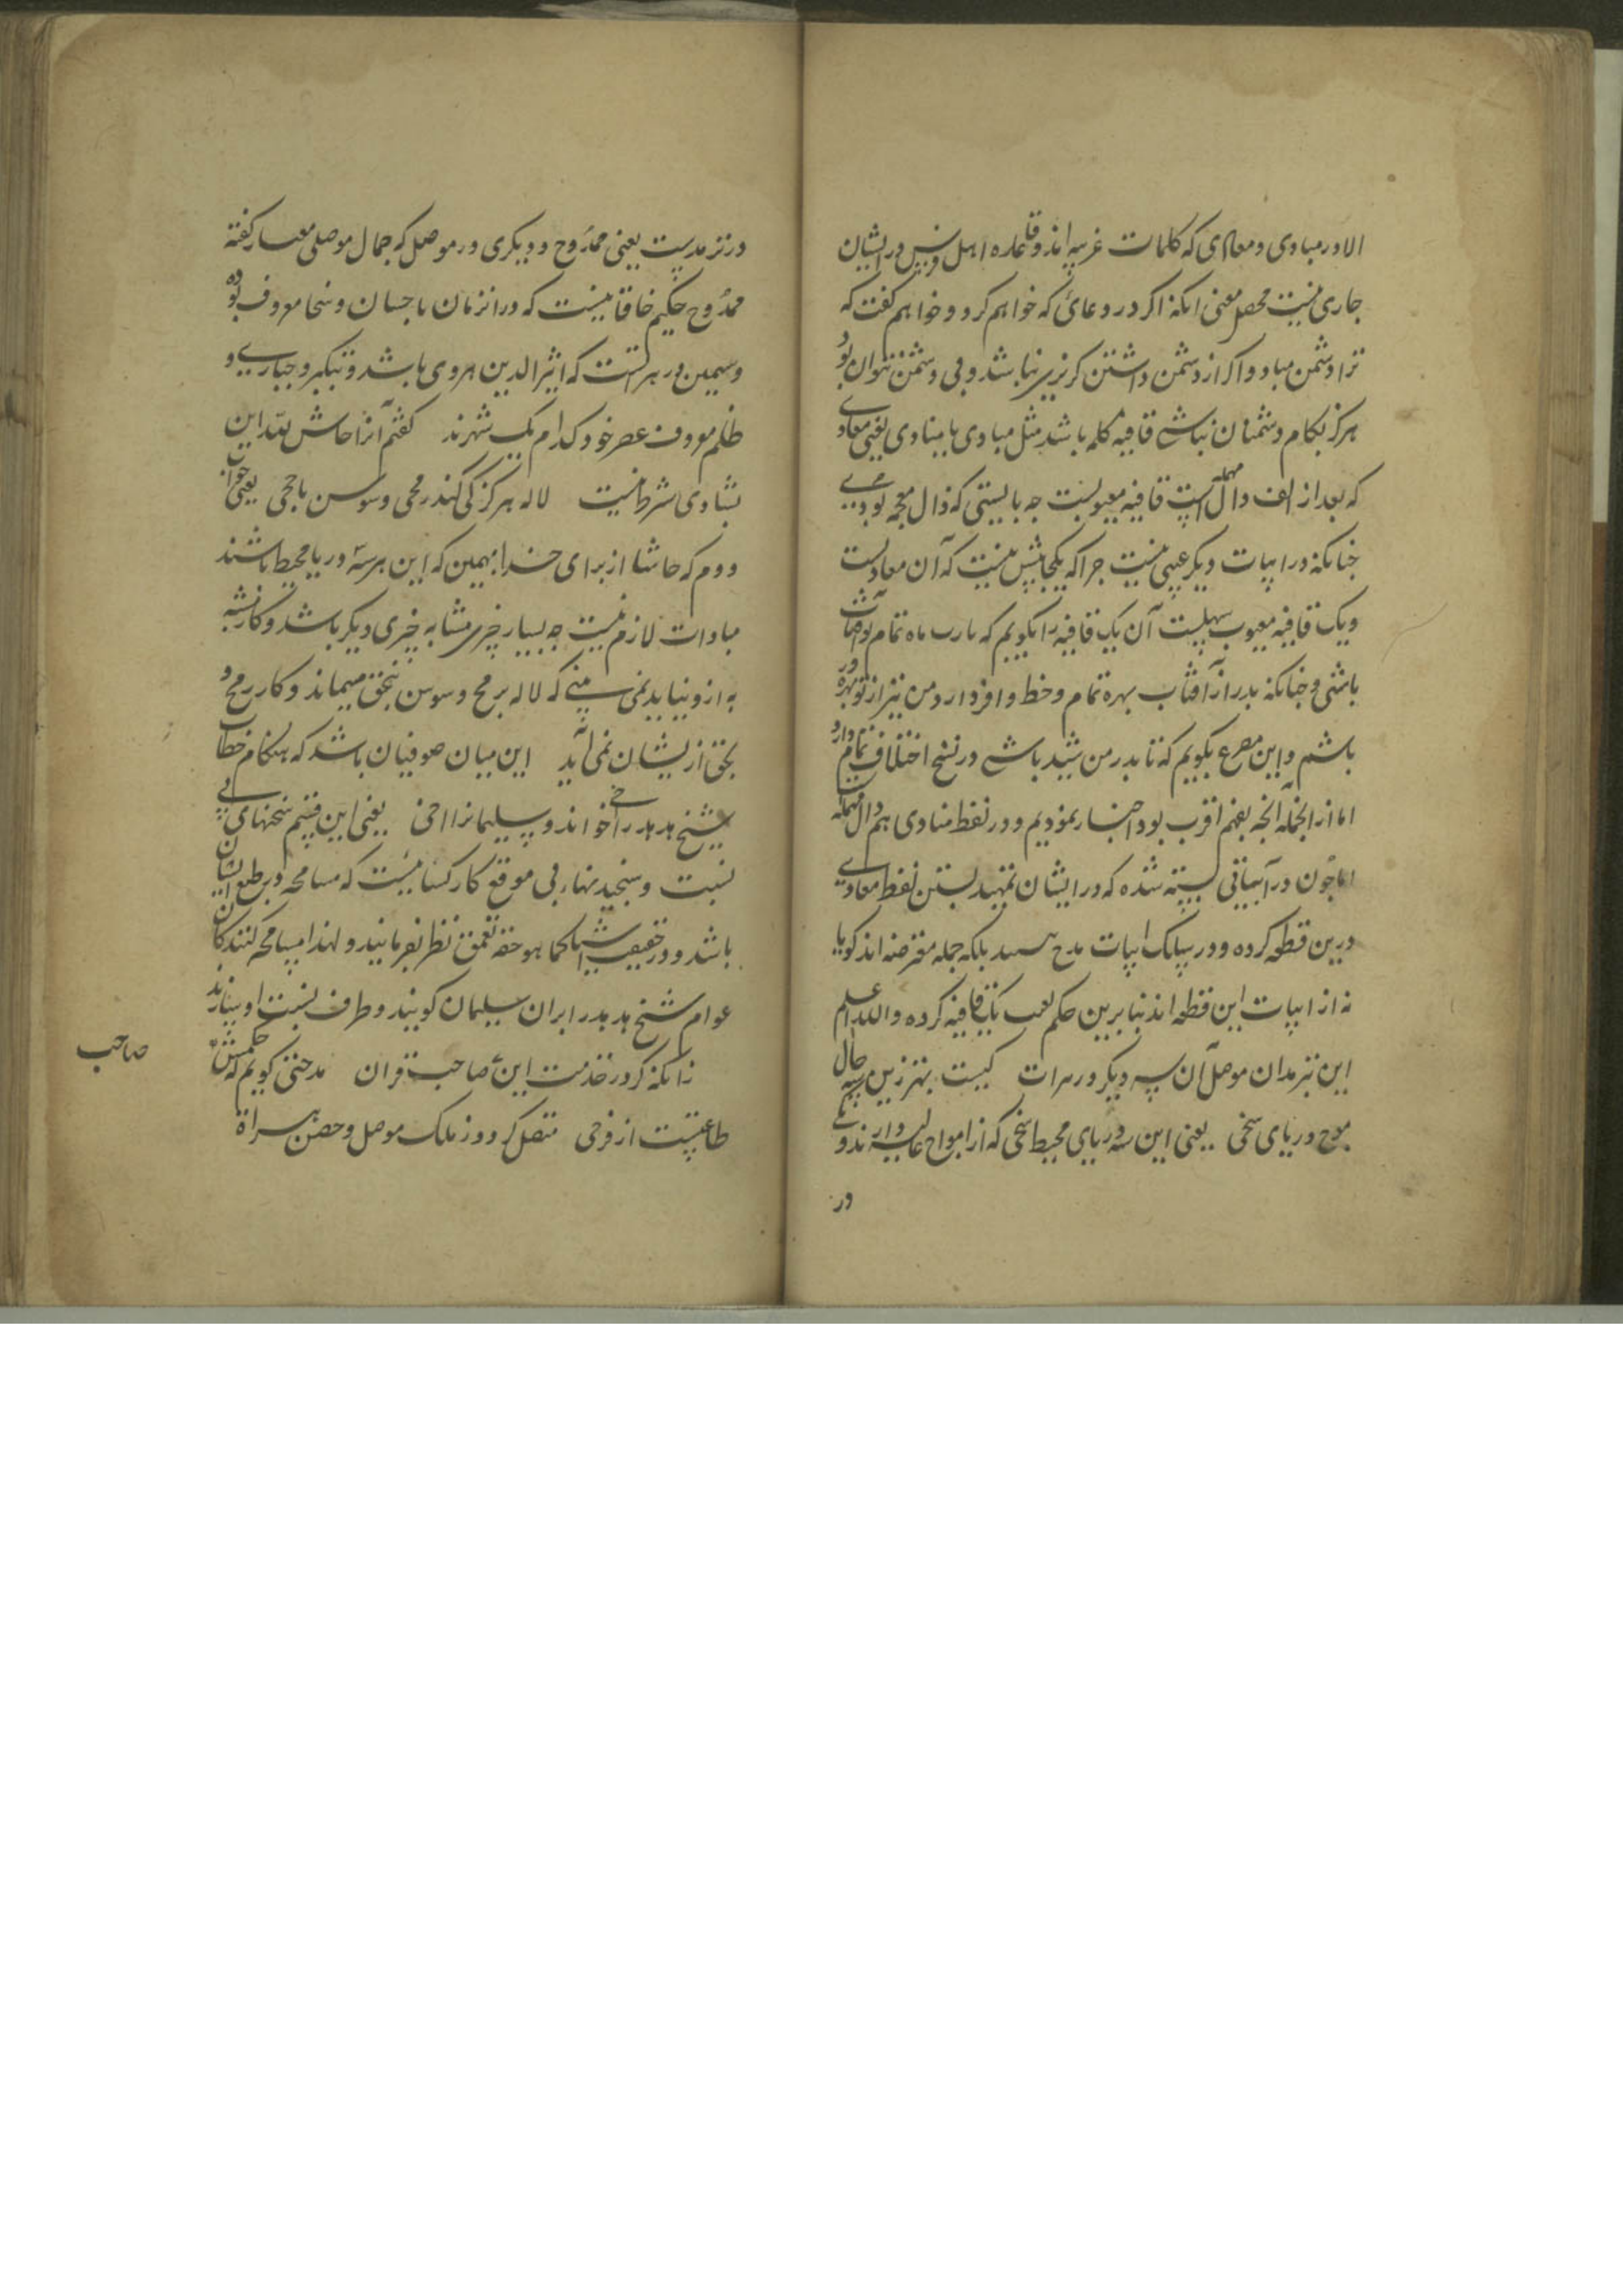 الا در مبادی و معادی که کلمات عربیه اند و قاعده اهل فرس در ایشان
جاری نیست محصل معنی آنکه اگر در دعائی که خواهم کرد و خواهم گفت که
ترا دشمن مباد و اگر از دشمن داشتن گریزی نباشد و بی دشمن نتوان بود
هرگز بکام دشمنان نباشی قافیه کلمه باشد مثل مبادی یا منادی یعنی معادی
که بعد از الف دال مهمله است قافیه معیوبست چه بایستی که ذال معجمه بودی
چنانکه در ابیات دیگر عیبی نیست چرا که یکجا بیش نیست که آن معادیست
و یک قافیه معیوب سهلیست آن یک قافیه را بگویم که یارب ماه تمام بو
باشی و چنانکه بدر از آفتاب بهره تمام و حظ وافر دارد من نیز از تو بهره ور
باشم و این مصرع بگویم که تا بدر من شید باشی در نسخ اختلاف تمام دارد
اما از انجمله آنچه بفهم اقرب بود اختیار نمودیم و در لفظ منادی هم دال مهمله
اما چون در آبیاتی بسته شده که در ایشان تمهید بستن لفظ معادی
درین قطعه کرده و در سلک ابیات مدح نیستند بلکه جمله معترضه اند گویا
نه از ابیات این قطعه اند بنابرین حکم بعیب یک قافیه کرده والله اعلم
این بترمدان موصل آن سه دیگر در هرات کیست بهتر زین سه حال
موج دریای سخی یعنی این سه دریای محیط سخی که از امواج عالیه دارند
در
در ترمدیست یعنی ممدوح و دیگری در موصل که جمال موصلی معمار گفته
ممدوح حکیم خاقانیست که در انزمان باحسان و سخا معروف بوده
و سیمین در هراتست که اثیر الدین هروی باشد و بتکبر و جباری و
ظلم معروف عصر خود کدام یک شهرند گفتم آنرا حاش لله این
بتناوی شرط نیست لاله هرگز کی کند رمحی و سوسن ناجخی یعنی جواب
دوم که حاشا از برای خدا همین که این هر سه دریا محیط باشند
مساوات لازم نیست چه بسیار چیزی مشابه چیزی دیگر باشد و کار مشبه
به ازو نیاید نمی بینی که لاله برمح و سوسن بنجق میماند و کار رمح و
بجق ازیشان نمی آید این میان صوفیان باشد که هنگام خطاب
شیخ هدهد را اخی خواند و سلیمانرا اخی یعنی این قسم سخنهای بی
نسبت و سنجیدنهای بی موقع کار کسانیست که مسامحه در طبع ایشان
باشد و در حقیقت اشیا کما هو حقه تعمق نظر نفرمایند و لهذا مسامحه کنندگان
عوام شیخ هدهد را بران سلیمان گویند و طرف نسبت او سازند
زانکه گر در خدمت این صاحب قران مدحتی گویم که حکمش
طاعتیست از فرخی متصل کردد ز ملک موصل و حصن سراة
صاحب